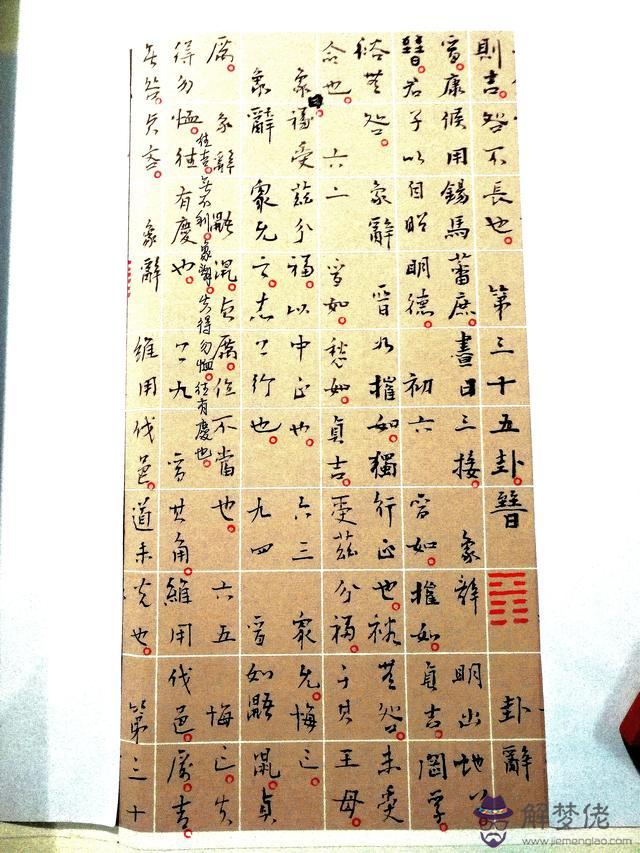 則吉。咎不長也。 第三十五卦。晉 卦辭
晉康候用錫馬蕃庶。晝日三接。 象辭 明出地上
晉。君子以自昭明德。 初六 晉如。摧如。貞吉。罔孚
裕无咎。 象辭 晉如摧如。獨行正也。裕无咎。未受
命也。 六二 晉如。愁如。貞吉。受茲介福。于其王母
象曰受茲介福。以中正也。 六三 眾允。悔亡。
象辭 眾允之。志上行也。 九四 晉如鼫鼠。貞
厲。 象辭 鼫鼠。貞厲。位不當也。 六五 悔亡。失
往吉。无不利。象辭。失得勿恤。往有慶也。
得勿恤。往有慶也。 上九 晉其角。維用伐邑。厲吉。
无咎。貞吝。 象辭 維用伐邑。道未光也。 第三十
解梦佬
www.jiemenglao.com